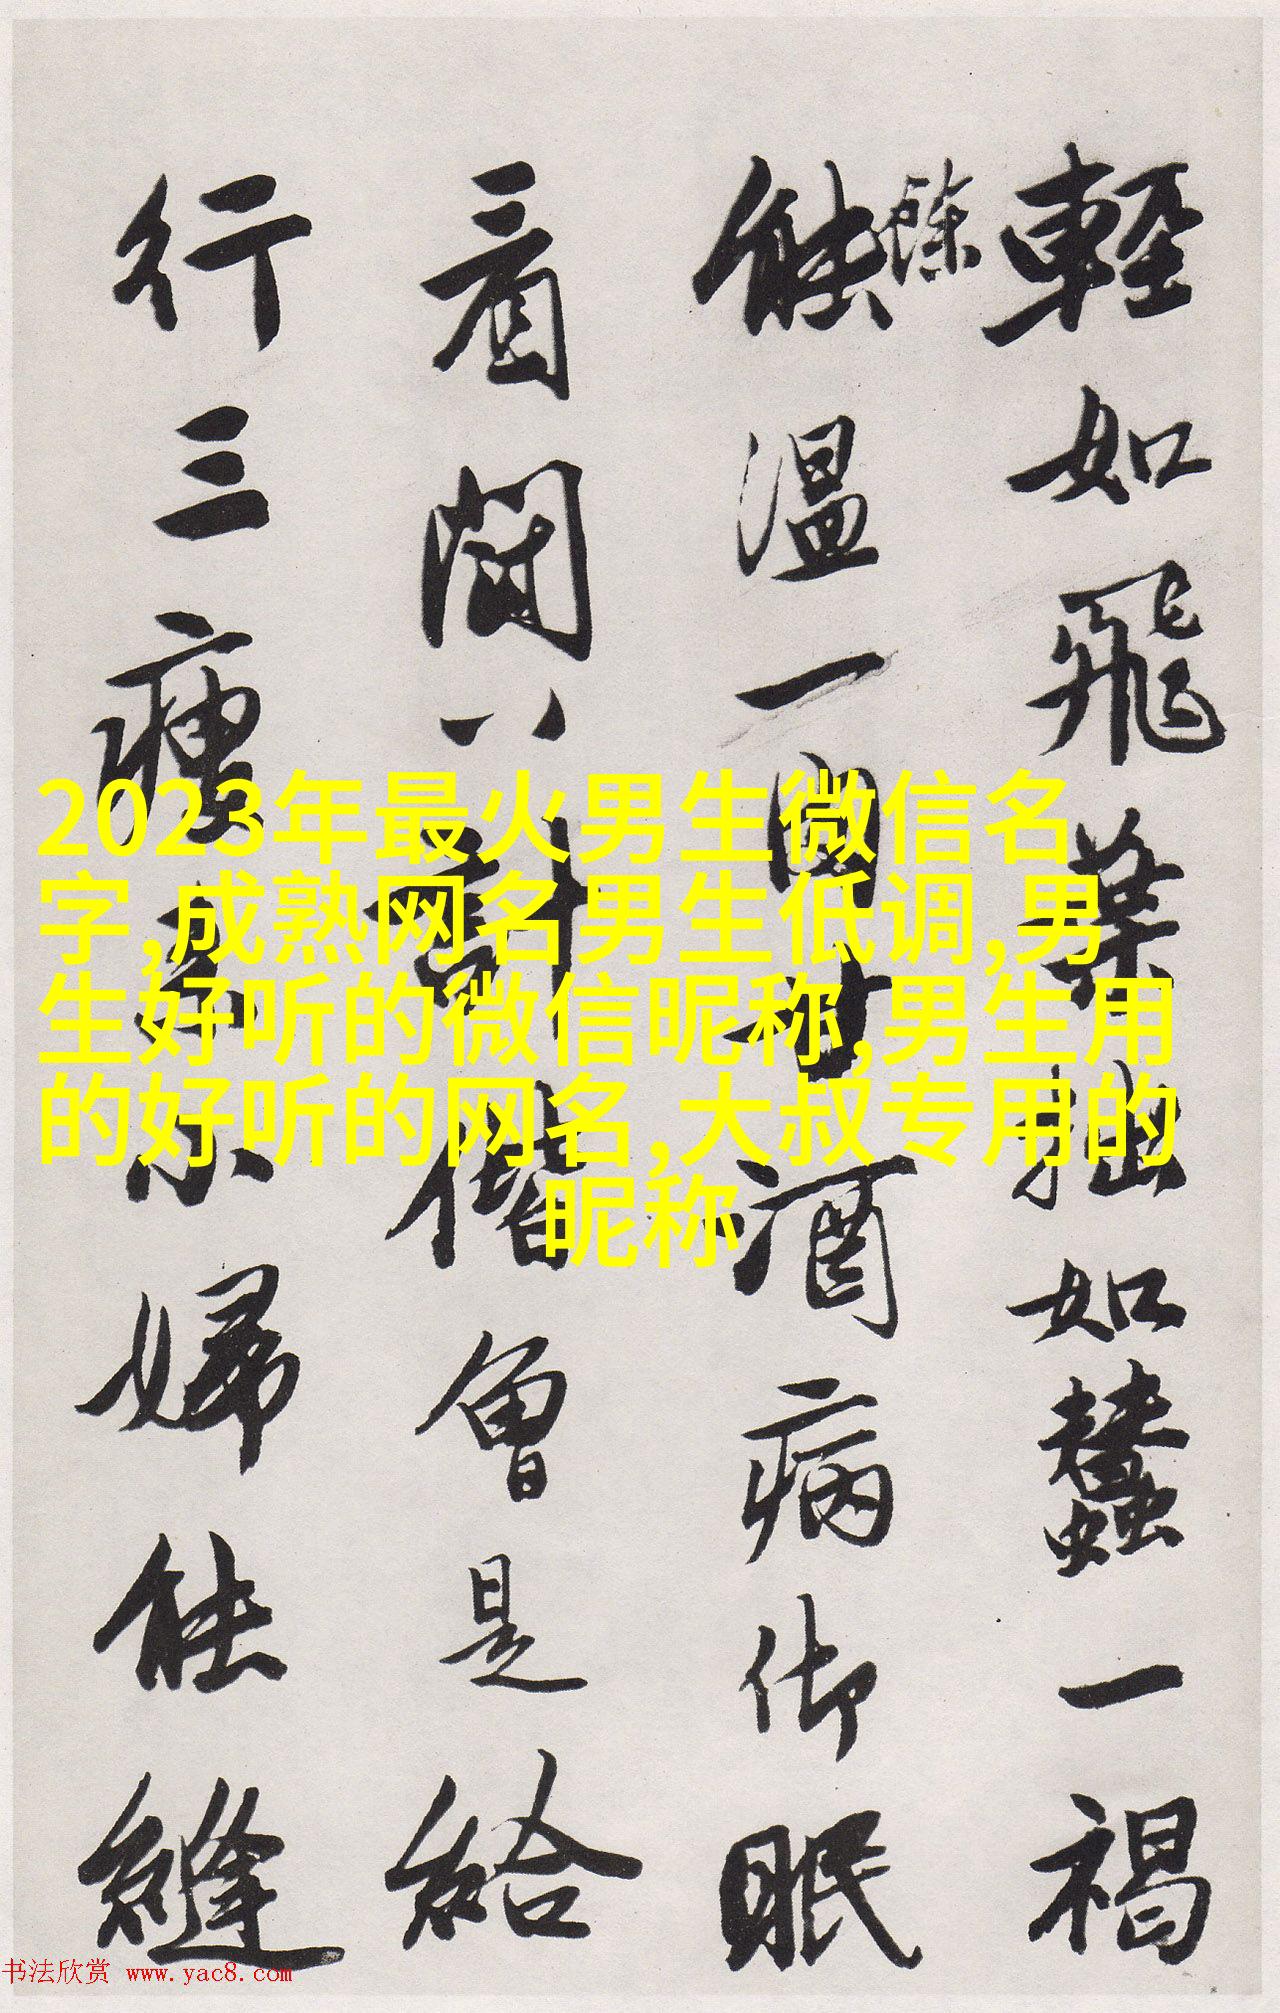 輕如飛葉拙如蠶一褐
餘
能溫一甘酒病御眠
看八計偕曾是給
行三瘦小婦能縫
2023年最火男生微信名
字,成熟网名男生低调,男
生好听的微信昵称,男生用
的好听的网名,大叔专用的
昵称
书法欣赏 www.yac8.com